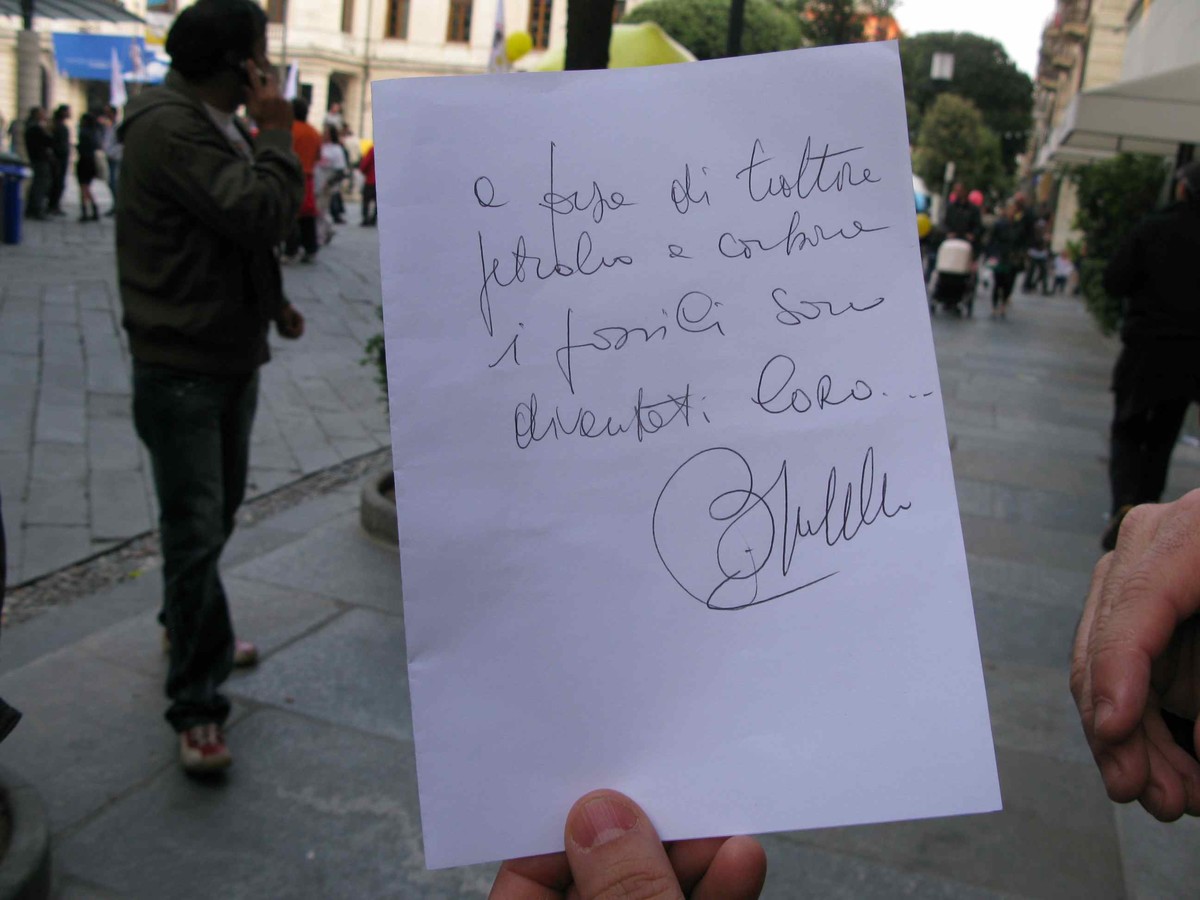 a forza di trattare
petrolio e carbone
i fossili sono
diventati loro...